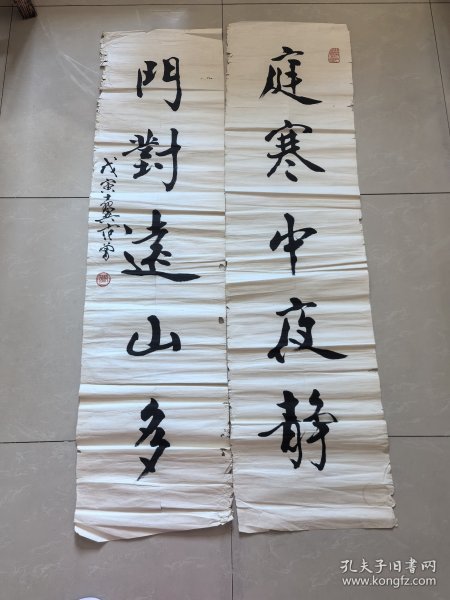 庭寒中夜静
門對遠山多
戊寅
范曾
孔夫子旧书网
www.kongfz.com